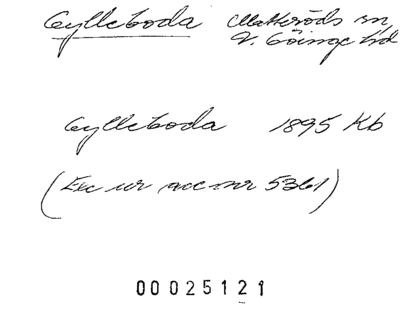 Gylleboda Matteröds sn
V. Göinge hd
Gylleboda 1895 Kb
(Exc ur acc nr 5361)
00025121